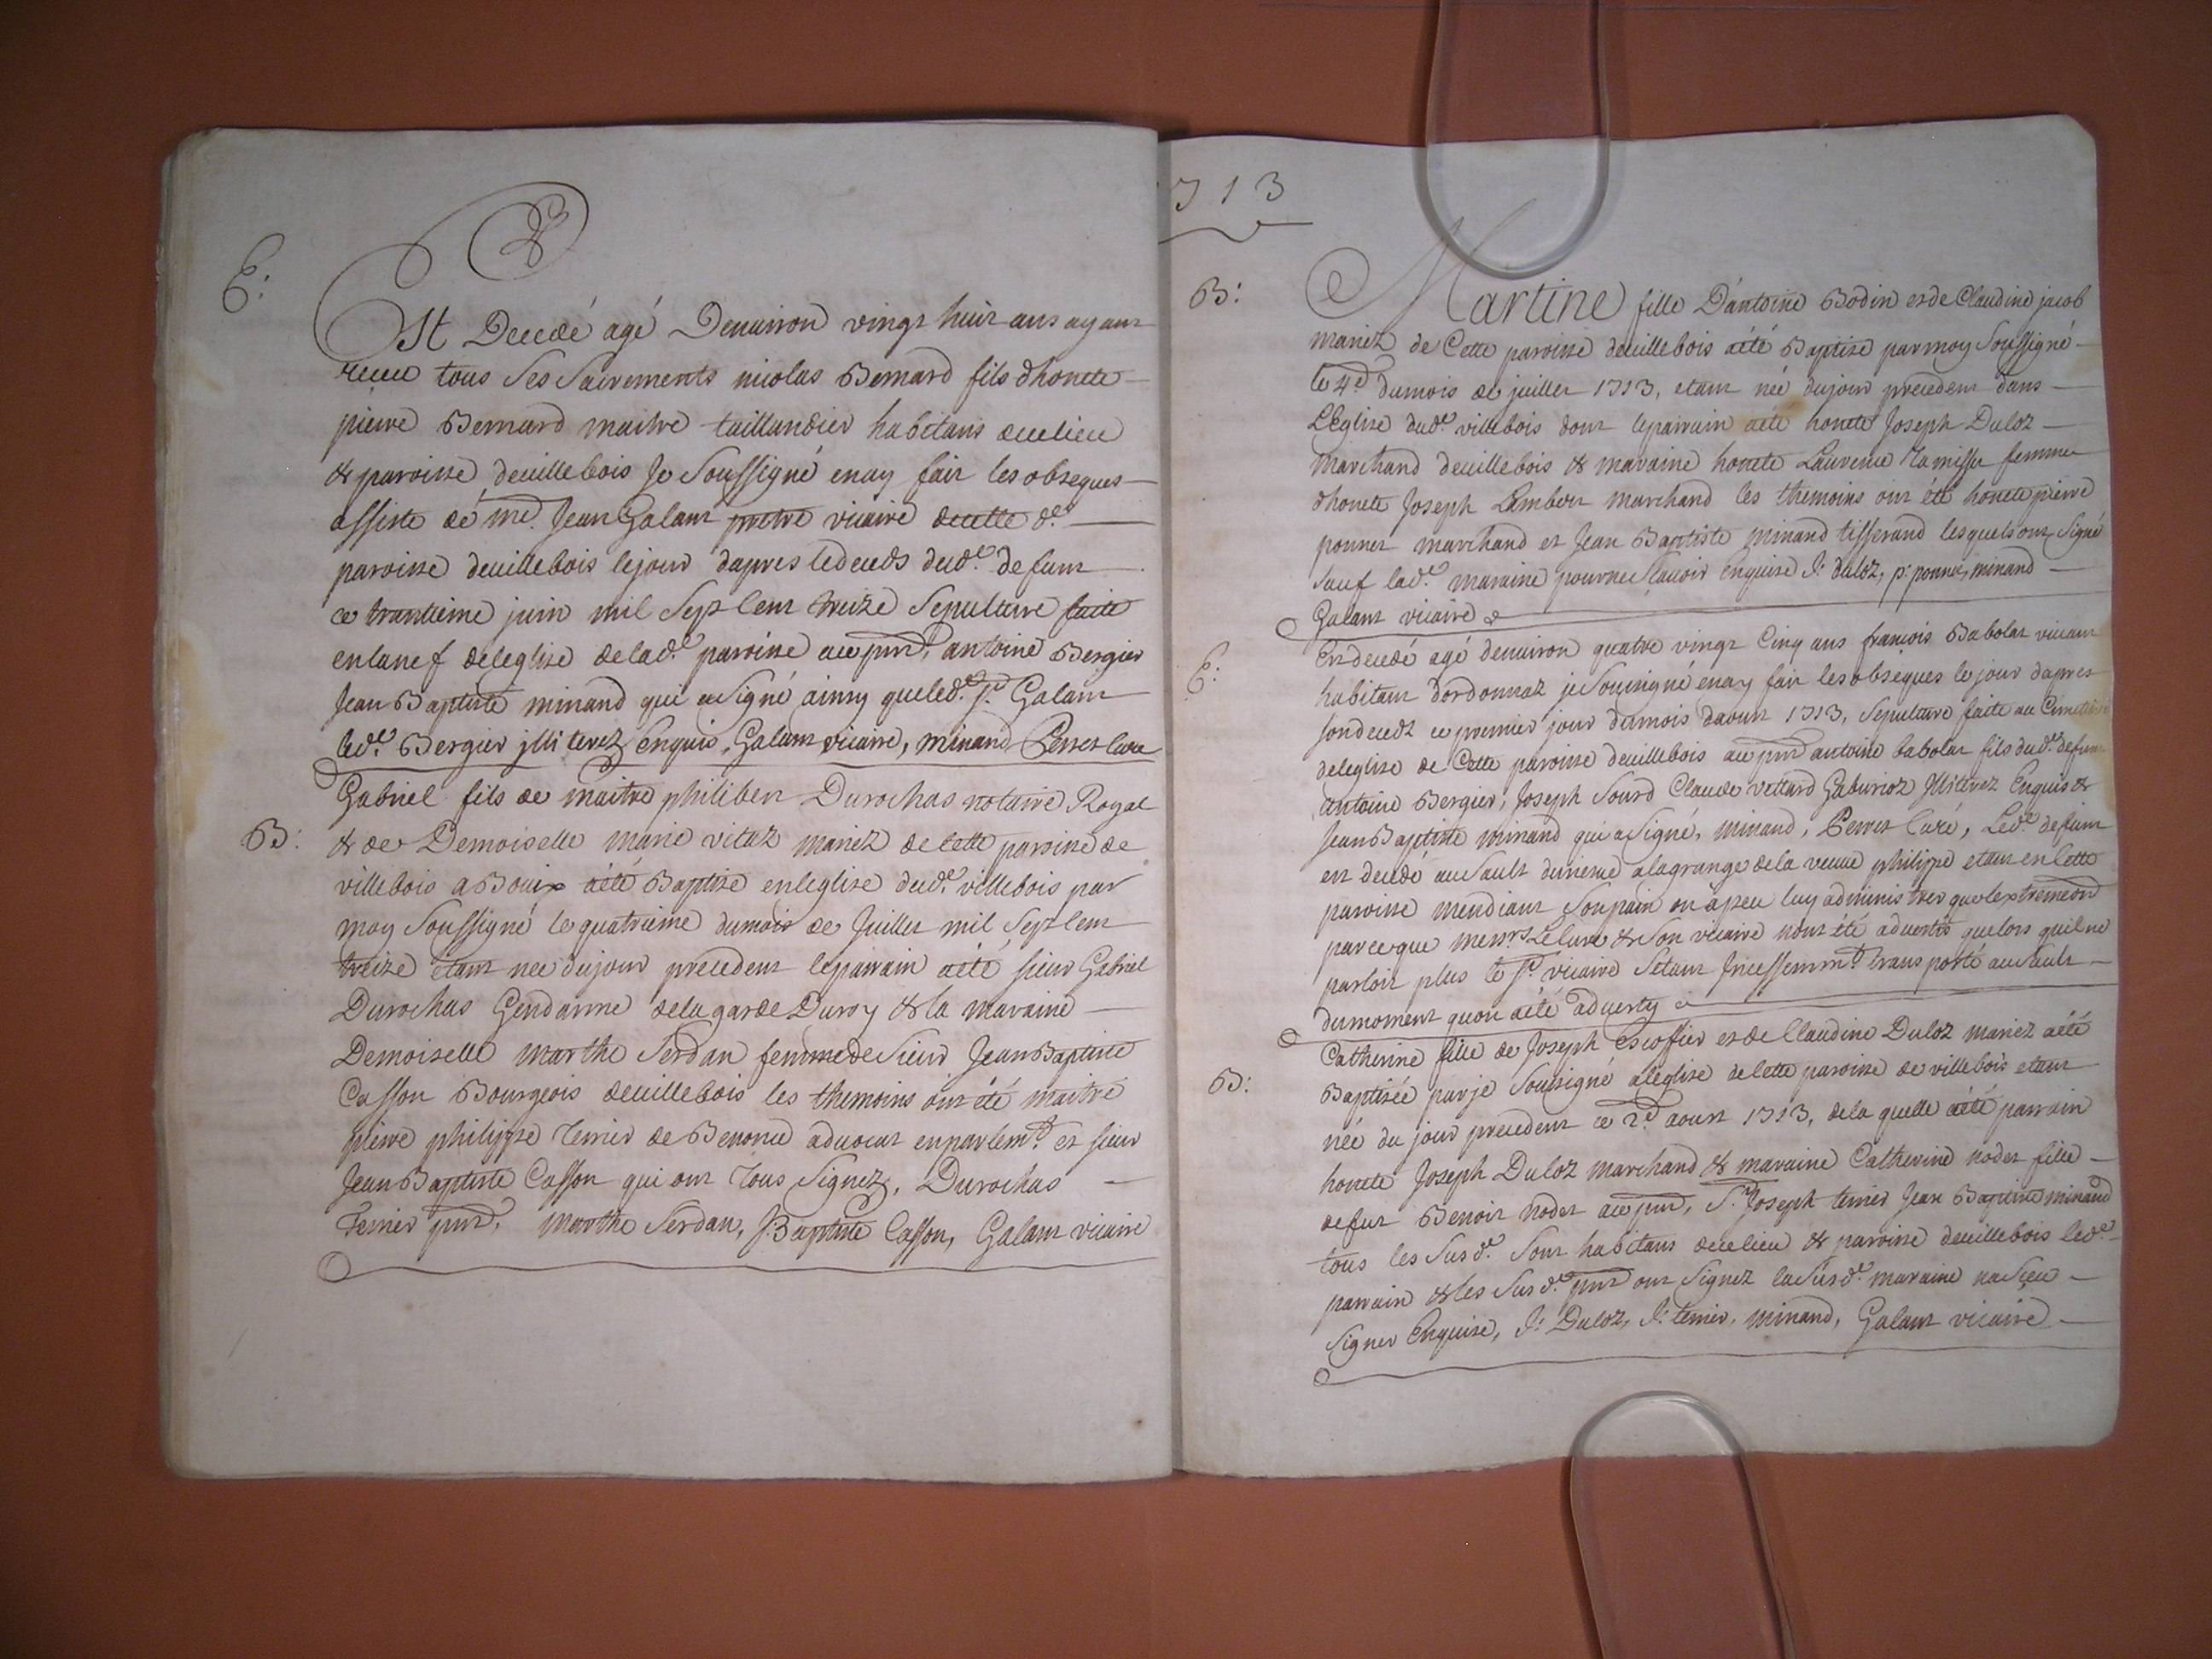 E:
Est Decedé agé Denuiron vingt huit ans ayant
receu tous Ses Sacrements nicolas Bernard fils dhonete
pierre Bernard maitre taillandier habitans decelieu
& paroisse deuillebois Je Soussigné enay fait les obseques
assiste de me. Jean Galant pretre vicaire decette de.
paroisse deuillebois lejour dapres ledeceds dude. defunt
ce trantieme juin mil Sept Cent treize Sepulture faite
enlanef deleglise delade. paroisse aupnt, antoine Bergier
Jean Baptiste minand qui a Signé ainsy quelede. Sr. Galant
lede. Bergier illiterez enquis, Galant vicaire, minand Perret Curé
B:
Gabriel fils de maitre philibert Durochas notaire Royal
& de Demoiselle marie vitaz mariez de Cette paroisse de
villebois a Bouis aété Baptise enleglise dude. villebois par
moy Soussigné le quatrieme dumois de Juillet mil Sept Cent
treize étant nee dujour precedent leparrain aété sieur Gabriel
Durochas Gendarme delagarde Duroy & la maraine
Demoiselle marthe Serdan femme de Sieur Jean Baptiste
Casson Bourgeois deuillebois les themoins ont été maitre
pierre philippe Terrier de Benonce aduocat enparlemt. et sieur
Jean Baptiste Casson qui ont Tous Signez, Durochas
Terrier pnt, marthe Serdan, J. Baptiste Casson, Galant vicaire
713
B:
Martine fille Dantoine Bodin et de Claudine jacob
mariez de Cette paroisse deuillebois aété Baptise parmoy Soussigné
le 4e dumois de juillet 1713, etant née dujour precedent dans
LEglise dude. villebois dont leparrain aété honete Joseph Duloz
marchand deuillebois & maraine honete Laurence Ramisse femme
dhonete Joseph Lambert marchand les themoins ont été honete pierre
ponnet marchand et Jean Baptiste minand tisserand lesquels ont Signé
Sauf lade. maraine pourne Scauoir enquise J: duloz, p: ponnet, minand
Galant vicaire
E:
Est decedé agé denuiron quatre vingt Cinq ans françois Babolat viuant
habitant dordonnaz je Sousigné enay fait les obseques le jour dapres
sondecedz ce premier jour dumois daoust 1713, Sepulture faite au Cimetiere
deleglise de Cette paroisse deuillebois au pnt antoine babolat fils dude. defunt
antoine Bergier, Joseph Sourd Claude vettard Gaburioz Illiterez Enquis &
Jean Baptiste minand qui a Signé, minand, Perret Curé, Lede. defunt
est decedé au Sault a lagrange dela veuue philippe etant en Cette
paroisse mendiant Sonpain on apeu luy administrer que lextremeon
parceque messrs Le Curé & Son vicaire nont été aduertis quelors quilne
parloit plus le Sr. vicaire Setant Incessemmt. transporté au Sault
dumoment quon aété aduerty
B:
Catherine fille de Joseph escoffier et de Claudine Duloz mariez aété
Baptisée par je Sousigné aleglise de Cette paroisse de villebois etant
née du jour precedent ce 2e aoust 1713, dela quelle aété parrain
honete Joseph Duloz marchand & maraine Catherine nodet fille
defut Benoit nodet au pnt, Sr. Joseph terrier Jean Baptiste minand
tous les Susde. Sont habitans decelieu & paroisse deuillebois lede.
parrain & les Susde. pnt ont Signez la Susde. maraine na Sçeu
Signer Enquise, J: Duloz, J: terrier, minand, Galant vicaire